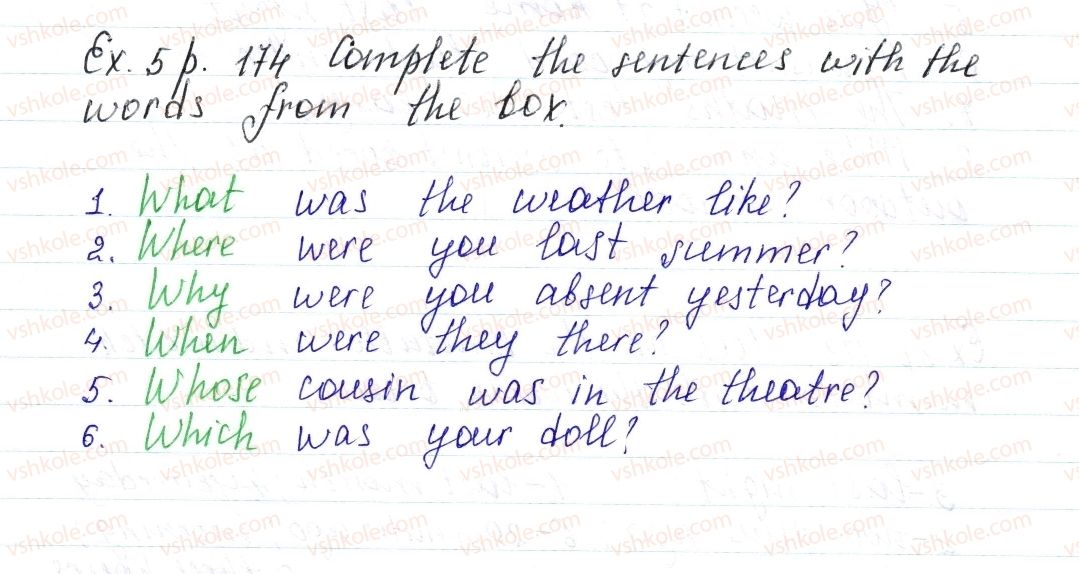 Ex. 5 p. 174 Complete the sentences with the
words from the box.
1. What was the weather like?
2. Where were you last summer?
3. Why were you absent yesterday?
4. When were they there?
5. Whose cousin was in the theatre?
6. Which was your doll?